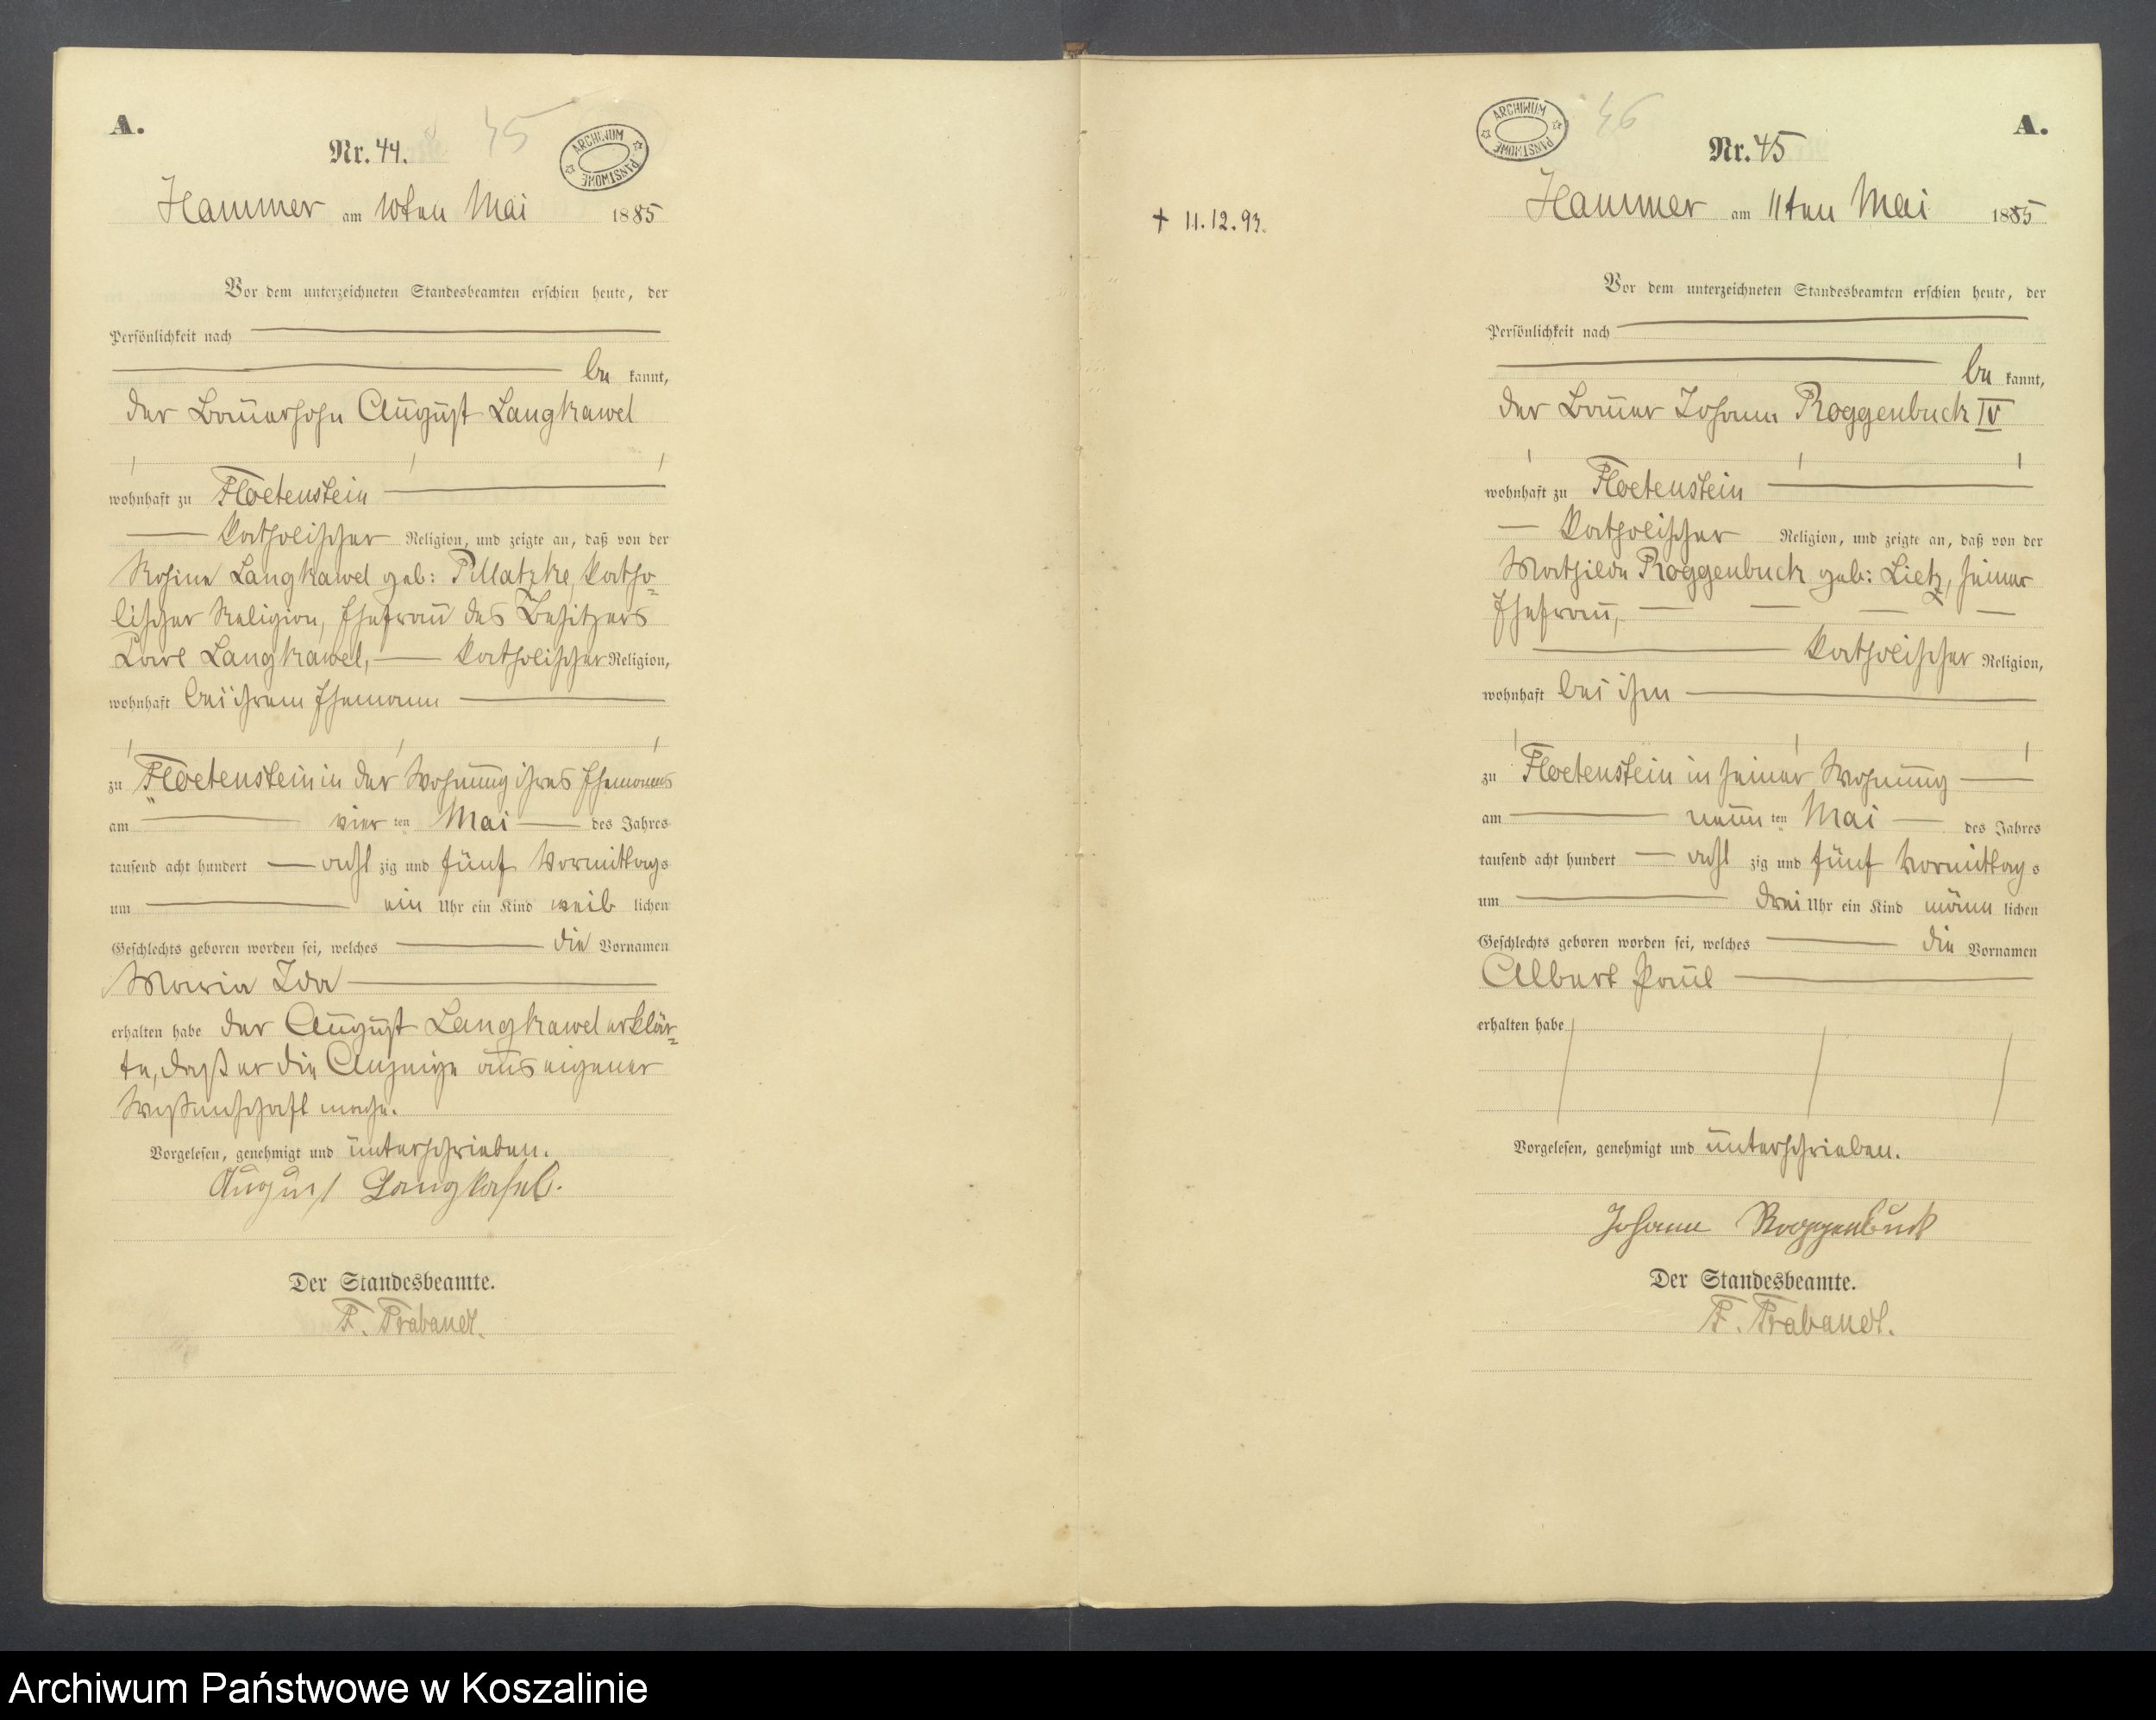 A.
Nr. 44.
45
ARCHIWUM PAŃSTWOWE
Hammer am 10ten Mai 1885
Vor dem unterzeichneten Standesbeamten erschien heute, der
Persönlichkeit nach
be kannt,
der Bauersohn August Langkawel
wohnhaft zu Floetenstein
katholischer Religion, und zeigte an, daß von der
Rosine Langkawel geb: Pillatzke, katho=
lischer Religion, Ehefrau des Besitzers
Carl Langkawel, katholischer Religion,
wohnhaft bei ihrem Ehemann
zu Floetenstein in der Wohnung ihres Ehemanns
am vier ten Mai des Jahres
tausend acht hundert acht zig und fünf Vormittags
um ein Uhr ein Kind weib lichen
Geschlechts geboren worden sei, welches die Vornamen
Maria Ida
erhalten habe der August Langkawel erklär=
te, daß er die Anzeige aus eigener
Wissenschaft mache.
Vorgelesen, genehmigt und unterschrieben.
August Langkafel.
Der Standesbeamte.
F. Trabandt.
+ 11.12.93.
ARCHIWUM PAŃSTWOWE
46
A.
Nr. 45
Hammer am 11ten Mai 1885
Vor dem unterzeichneten Standesbeamten erschien heute, der
Persönlichkeit nach
be kannt,
der Bauer Johann Roggenbuck IV
wohnhaft zu Floetenstein
katholischer Religion, und zeigte an, daß von der
Mathilde Roggenbuck geb: Lietz, seiner
Ehefrau,
katholischer Religion,
wohnhaft bei ihm
zu Floetenstein in seiner Wohnung
am neun ten Mai des Jahres
tausend acht hundert acht zig und fünf Vormittags
um drei Uhr ein Kind männ lichen
Geschlechts geboren worden sei, welches die Vornamen
Albert Paul
erhalten habe
Vorgelesen, genehmigt und unterschrieben.
Johann Roggenbuck
Der Standesbeamte.
F. Trabandt.
Archiwum Państwowe w Koszalinie